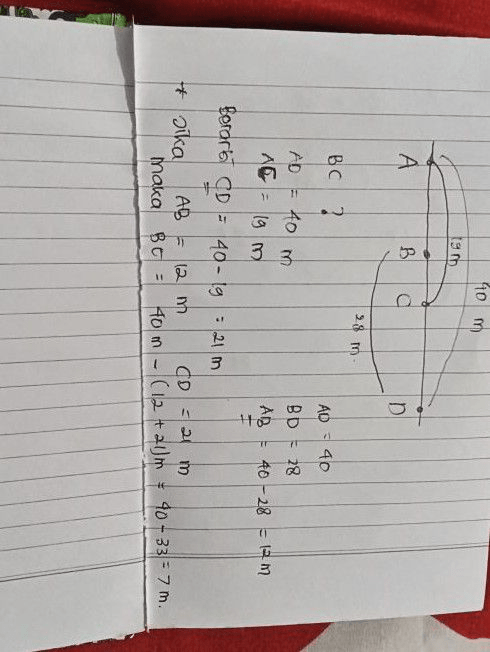 40 m
19 m
A B C D
28 m.
BC ?
AD = 40 m
AC = 19 m
Berarti CD = 40 - 19 = 21 m
AD = 40
BD = 28
AB = 40 - 28 = 12 m
* Jika AB = 12 m CD = 21 m
maka BC = 40 m - (12 + 21)m = 40 - 33 = 7 m.